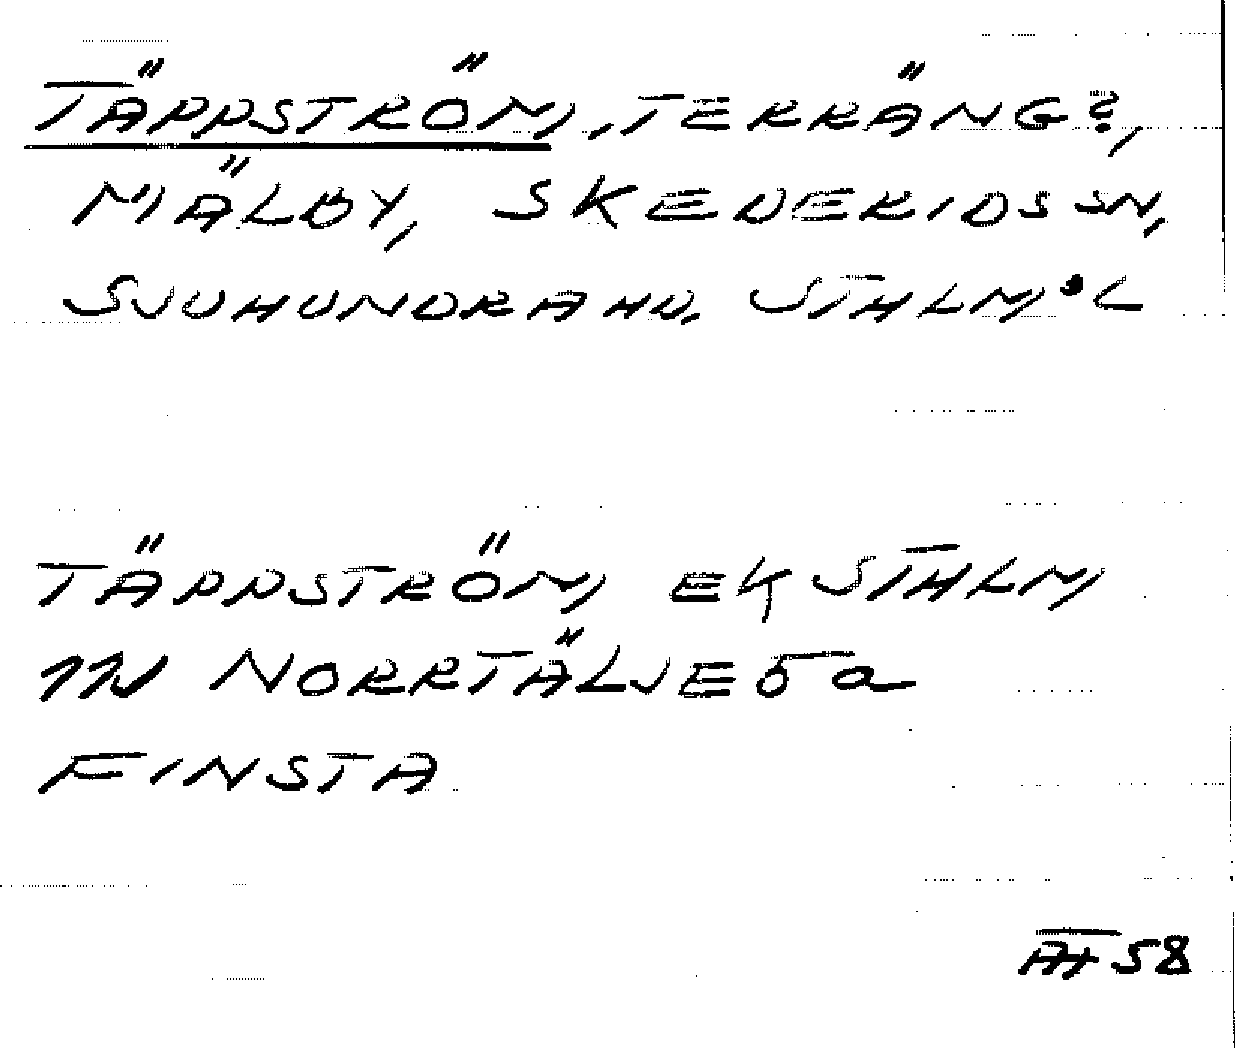 TÄPPSTRÖM, TERRÄNG?,
MÄLBY, SKEDERIDS SN,
SJUHUNDRA HD, STHLM:S L
TÄPPSTRÖM, EK STHLM
11I NORRTÄLJE 5 a
FINSTA
58